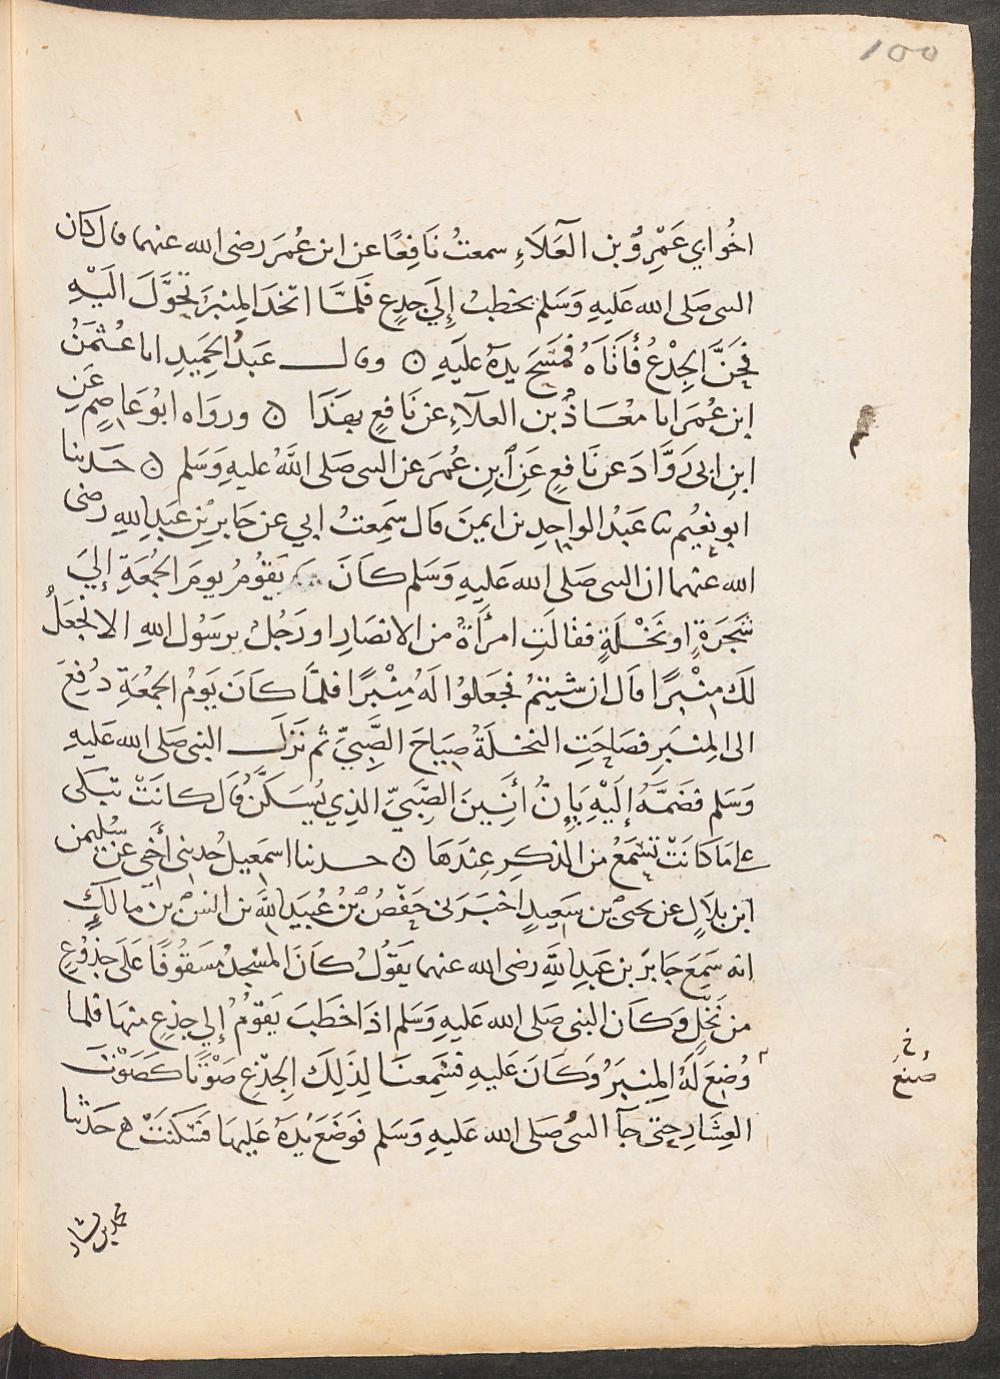 ١٥٥
اخُو ابي عَمْرِو بن العَلَاءِ سمعتُ نَافِعًا عن ابن عُمَرَ رضى الله عنهما قال كان
النبى صَلى الله عَليهِ وَسَلم يخطبُ إِلَى جِذعٍ فَلمَّا اتخذَ المِنبَرَ تَحَوَّلَ الَيْهِ
فَحَنَّ الجِذْعُ فَأَتَاهُ فَمَسَحَ يدَهُ عَليَهِ ۞ وقال عَبدُ الحَمِيدِ انا عُثْمَنُ
ابن عُمَرَ انا مُعَاذُ بن العلآءِ عن نَافعٍ بهَذَا ۞ ورواه ابوُ عَاصِمٍ عَنِ
ابنِ ابى رَوَّادَ عن نَافعٍ عَنِ ابنِ عُمَرَ عن النبى صَلى اللهُ عليهِ وَسَلم ۞ حَدثنا
ابو نعَيُم ثنا عَبْدُ الواحِدِ بن ايمنَ قال سَمِعتُ ابي عن جَابرِ بْنِ عَبَدِ اللهِ رضى
الله عنهما ان النبى صَلى الله عَليهِ وَسَلم كانَ يَقوُمُ يومَ الجُمُعَةِ إِليَ
شَجَرَةٍ او نَخْلَةٍ فقالَتِ امرأَةٌ من الانصَارِ او رَجُلٌ يرسُول اللهِ الا نَجعَلُ
لَك مِنْبَرًا قال ان شيتمُ فجَعَلوُا لَهُ مِنْبَرًا فلمَّا كانَ يَومُ الجمُعَةِ دُفِعَ
الى المِنبَرِ فصَاحَتِ النخلَةُ صِيَاحَ الصَّبِيِّ ثم نَزَل النبى صَلى الله عَليهِ
وَسَلم فضَمَّهُ إِلَيْهِ يَإِنُّ أَنِينَ الصَّبَيِّ الذِي يُسَكَّنُ قَال كانَتْ تبكى
على مَا كانَتْ تسْمَعُ من الذكرِ عِندَهَا ۞ حدثنا اسمَعِيل حدثنى أَخِي عن سُليمن
ابن بلاَلٍ عن يحيىَ بن سَعِيدٍ اخبَرَنى حَفصُ بنُ عُبَيدِ اللهِ بن انسِ بن مالكٍ
انه سَمِعَ جَابرَ بن عَبدِ اللهِ رضى الله عنهما يَقوُلُ كانَ المسْجِدُ مَسْقوُفًا عَلَى جذوُعٍ
من نَخْلٍ وَكانَ النبى صَلى الله عَليهِ وَسَلم اذا خطَبَ يَقوُمُ إِلي جِذعٍ منهَا فلما
وُضِعَ لَهُ المِنبَرُ وَكانَ عَليهِ فسَمِعنَا لِذَلِكَ الجِذْعِ صَوْتًا كصَوْتَ
العِشَارِ حتى جآَ النبىُ صَلى الله عَليهِ وَسَلم فوَضَعَ يدَهُ عَليهَا فسَكَنَتْ ه حَدثنا
خ
صُنع
محمد بن بشار